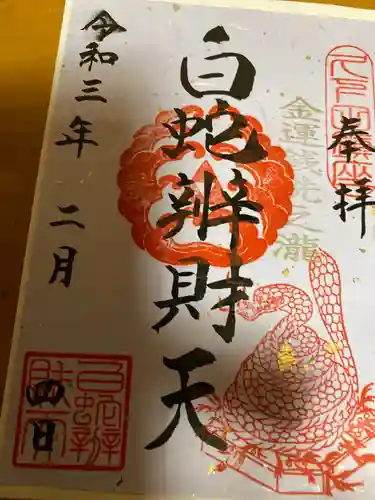 奉拝
金運銭洗之瀧
白蛇辨財天
令和三年二月
四日
白蛇辨
財天